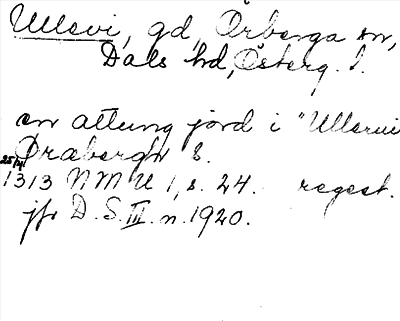 Ullevi, gd, Örberga sn,
Dals hd, Österg. l.
en attung jord i "Ullerui
Ørabergh s.
25/4
1313 NMU 1, s. 24. regest.
jfr D. S. III n. 1920.